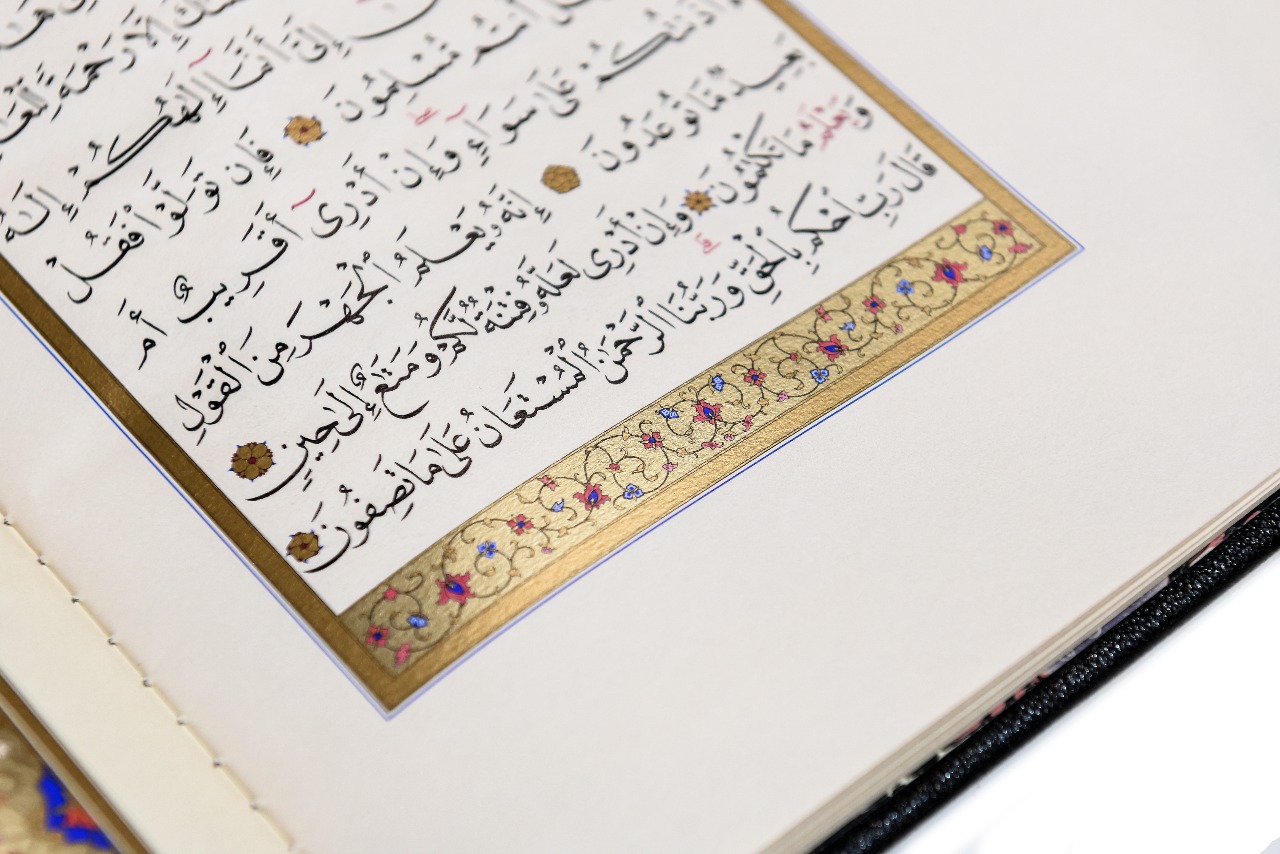 إِلَّا رَحْمَةً
إِلَىَّ أَنَّمَا إِلَٰهُكُمْ إِلَٰهٌ
أَنتُم مُّسْلِمُونَ ۝ فَإِن تَوَلَّوْا فَقُلْ
ءَاذَنتُكُمْ عَلَىٰ سَوَآءٍ وَإِنْ أَدْرِىٓ أَقَرِيبٌ أَم
بَعِيدٌ مَّا تُوعَدُونَ ۝ إِنَّهُ يَعْلَمُ الْجَهْرَ مِنَ الْقَوْلِ
وَيَعْلَمُ مَا تَكْتُمُونَ ۝ وَإِنْ أَدْرِى لَعَلَّهُ فِتْنَةٌ لَّكُمْ وَمَتَٰعٌ إِلَىٰ حِينٍ ۝
قَالَ رَبِّ احْكُم بِالْحَقِّ وَرَبُّنَا الرَّحْمَٰنُ الْمُسْتَعَانُ عَلَىٰ مَا تَصِفُونَ ۝